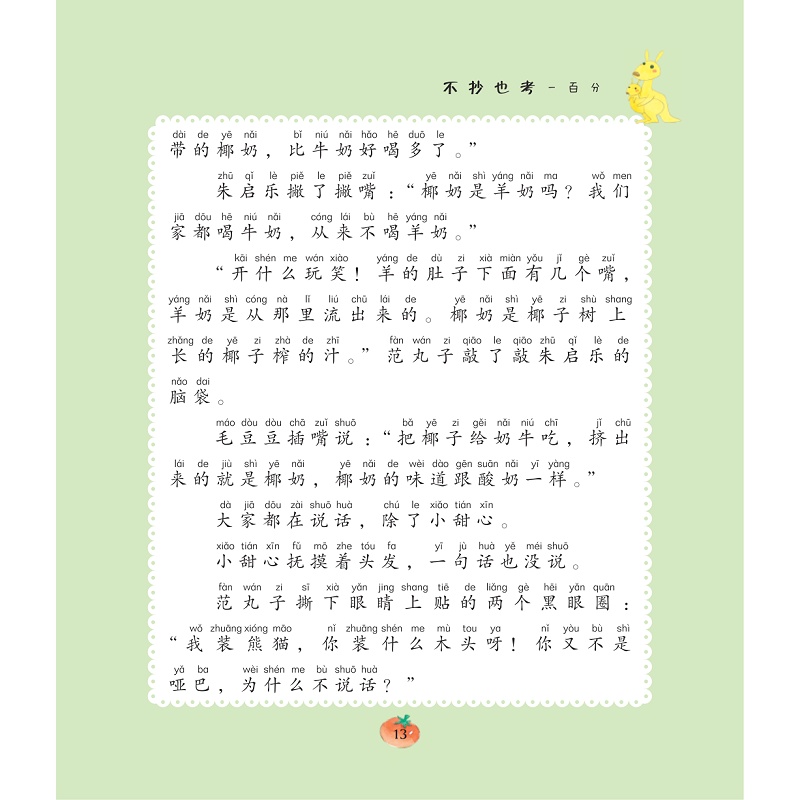 不抄也考一百分
dài de yē nǎi bǐ niú nǎi hǎo hē duō le
带的椰奶，比牛奶好喝多了。”
zhū qǐ lè piě le piě zuǐ yē nǎi shì yáng nǎi ma wǒ men
朱启乐撇了撇嘴：“椰奶是羊奶吗？我们
jiā dōu hē niú nǎi cóng lái bù hē yáng nǎi
家都喝牛奶，从来不喝羊奶。”
kāi shén me wán xiào yáng de dù zi xià miàn yǒu jǐ gè zuǐ
“开什么玩笑！羊的肚子下面有几个嘴，
yáng nǎi shì cóng nà lǐ liú chū lái de yē nǎi shì yē zi shù shang
羊奶是从那里流出来的。椰奶是椰子树上
zhǎng de yē zi zhà de zhī fàn wán zi qiāo le qiāo zhū qǐ lè de
长的椰子榨的汁。”范丸子敲了敲朱启乐的
nǎo dai
脑袋。
máo dòu dòu chā zuǐ shuō bǎ yē zi gěi nǎi niú chī jǐ chū
毛豆豆插嘴说：“把椰子给奶牛吃，挤出
lái de jiù shì yē nǎi yē nǎi de wèi dào gēn suān nǎi yī yàng
来的就是椰奶，椰奶的味道跟酸奶一样。”
dà jiā dōu zài shuō huà chú le xiǎo tián xīn
大家都在说话，除了小甜心。
xiǎo tián xīn fǔ mō zhe tóu fa yī jù huà yě méi shuō
小甜心抚摸着头发，一句话也没说。
fàn wán zi sī xià yǎn jing shang tiē de liǎng gè hēi yǎn quān
范丸子撕下眼睛上贴的两个黑眼圈：
wǒ zhuāng xióng māo nǐ zhuāng shén me mù tou ya nǐ yòu bù shì
“我装熊猫，你装什么木头呀！你又不是
yǎ ba wèi shén me bù shuō huà
哑巴，为什么不说话？”
13